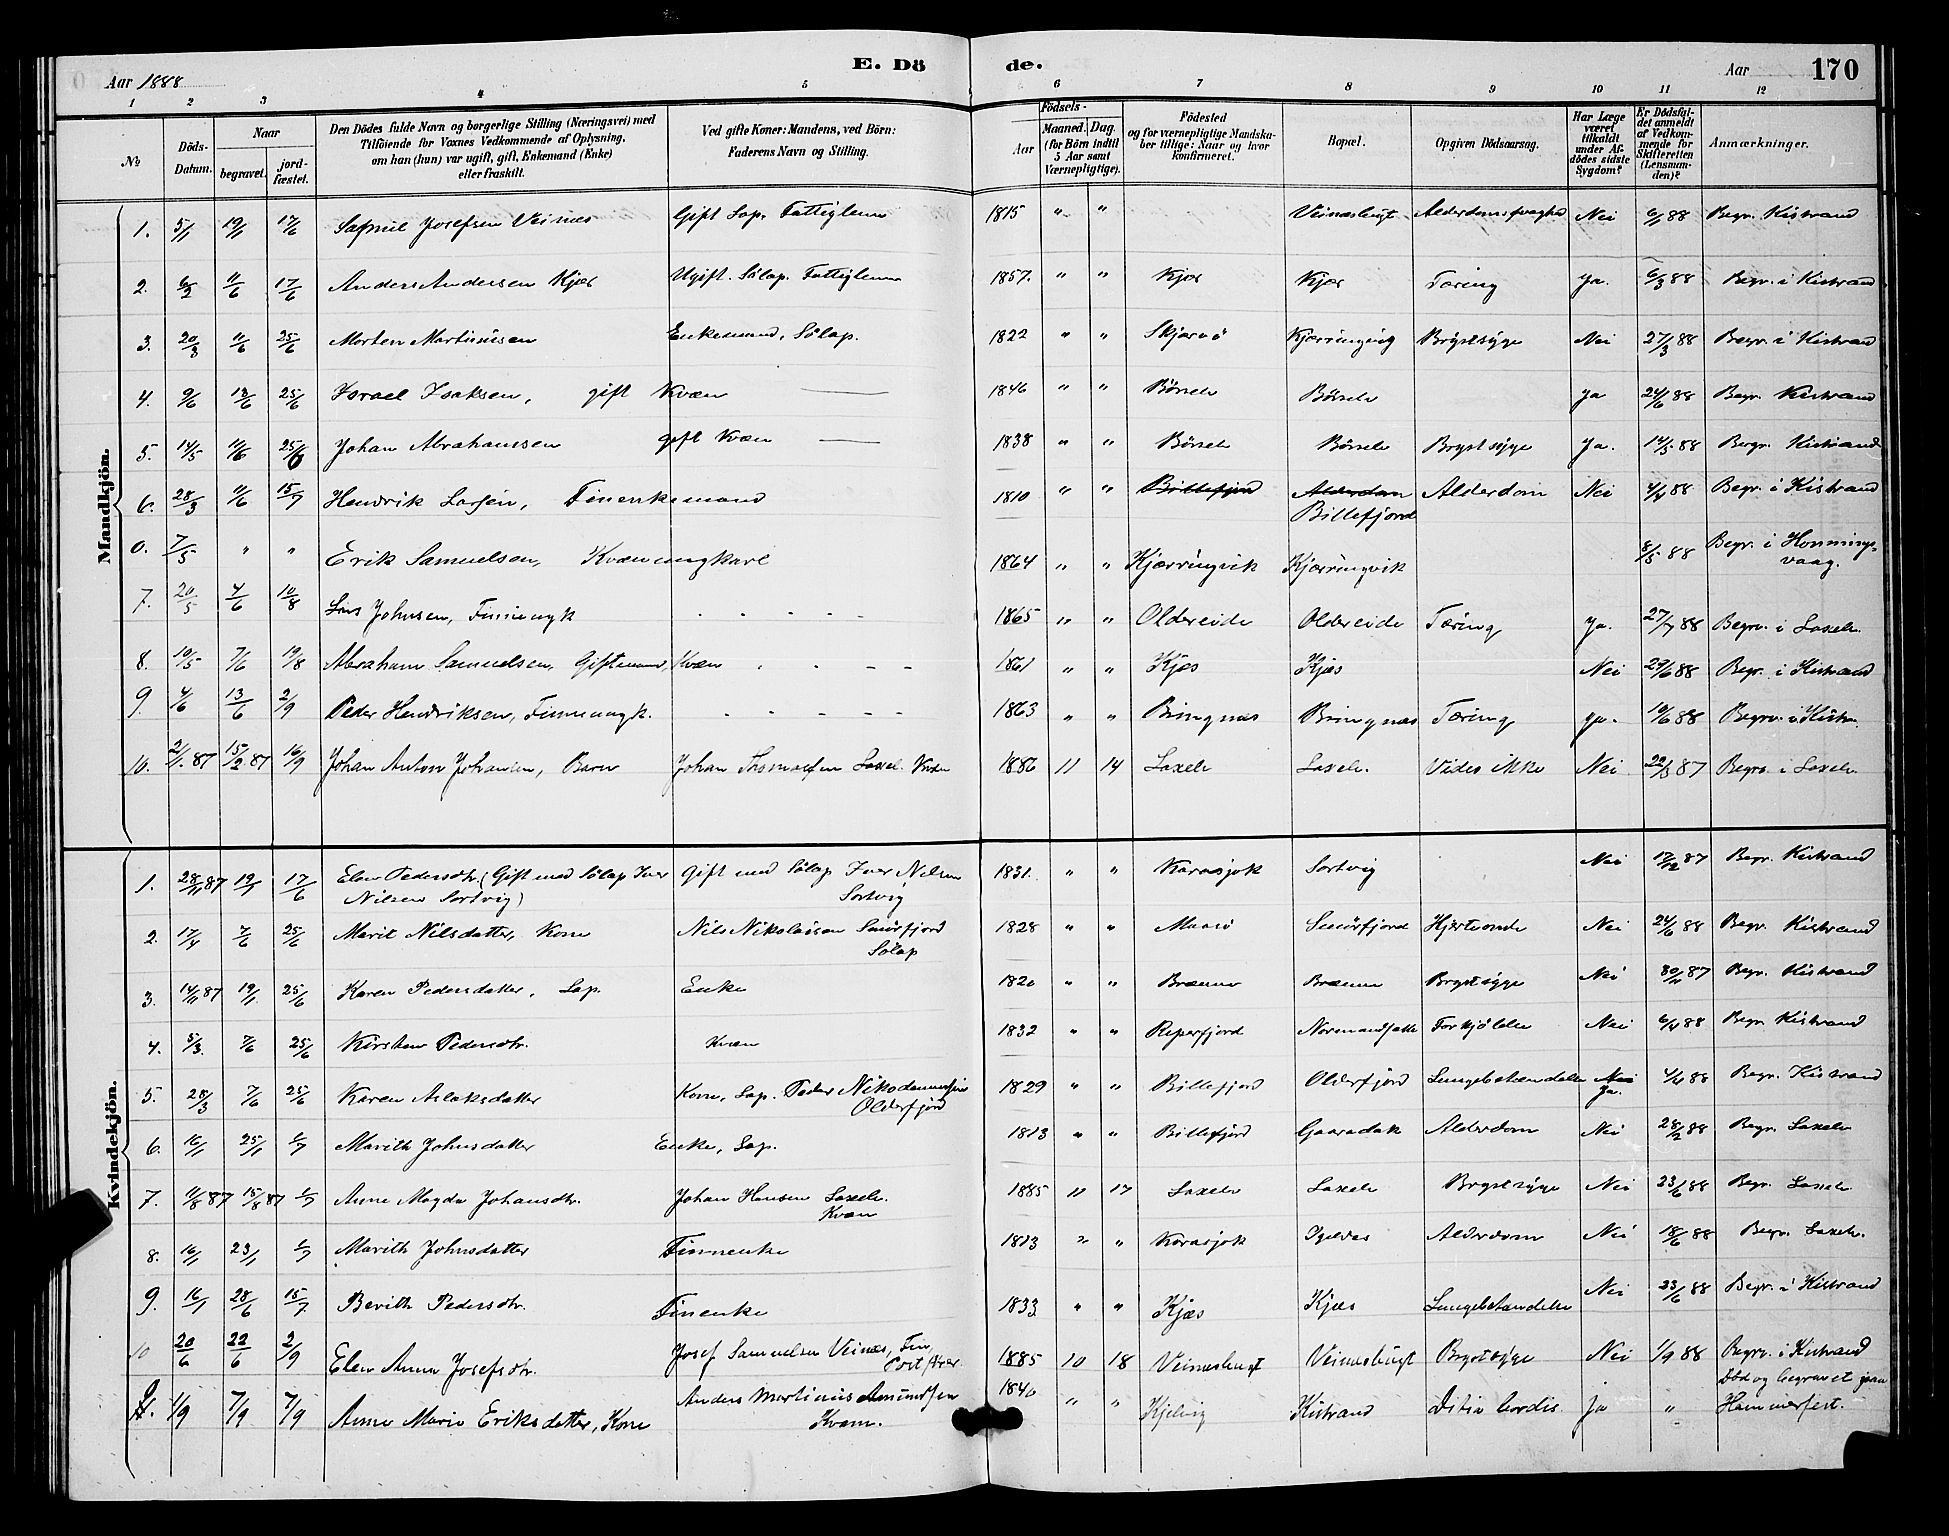 Aar 1888
E. Dö
de.
Aar
170
1 2 3 4 5 6 7 8 9 10 11 12
№
Döds-Datum.
Naar
begravet.
jord-fæstet.
Den Dödes fulde Navn og borgerlige Stilling (Næringsvei) med
Tilföiende for Voxnes Vedkommende af Oplysning,
om han (hun) var ugift, gift, Enkemand (Enke)
eller fraskilt.
Ved gifte Koner: Mandens, ved Börn:
Faderens Navn og Stilling.
Födsels-
Aar
Maaned. Dag.
(for Börn indtil
5 Aar samt
Værnepligtige).
Födested
og for værnepligtige Mandska-
ber tillige: Naar og hvor
konfirmeret.
Bopæl.
Opgiven Dödsaarsag.
Har Læge
været
tilkaldt
under Af-
dödes sidste
Sygdom?
Er Dödsfal-
det anmeldt
af Vedkom-
mende for
Skifteretten
(Lensman-
den)?
Anmærkninger.
Mandkjön.
1. 5/1 19/1 17/6 Samuel Josefsen Veinæs Gift Lap. Fattiglem 1815 " " Veinesbugt Alderdomssvaghed Nei 6/1 88 Begr. Kistrand
2. 6/2 11/6 17/6 Anders Andersen Kjæs Ugift. Sölap. Fattiglem 1857. " " Kjæs Kjæs Tæring Ja. 6/3 88 Begr. i Kistrand
3. 20/3 11/6 25/6 Morten Martinisen Enkemand, Sölap. 1822 " " Skjærvö Kjærringvig Brystsyge Nei 27/3 88 Begr. i Kistrand
4. 9/6 13/6 25/6 Israel Isaksen, gift Kvæn 1846 " " Börselv Börselv Ja 24/6 88 Begr. Kistrand
5. 14/5 11/6 25/6 Johan Abrahamsen gift Kvæn 1838 " " Börselv Börselv Brystsyge Ja. 14/5 88 Begr. Kistrand
6. 28/3 11/6 15/7 Hendrik Larsen, Finenkemand 1810 " " Billefjord Alderdom Alderdom Nei 4/4 88 Begr. i Kistrand
Billefjord
0. 7/5 " " Erik Samuelsen, Kvænungkarl 1864 " " Kjærringvik Kjærringvik 8/5 88 Begr. i Honnings-
vaag.
7. 20/5 4/6 10/8 Lars Johnsen, Finneungk 1865 " " Oldereide Oldereide Tæring Ja. 27/7 88 Begr. i Laxelv.
8. 10/5 7/6 19/8 Abraham Samuelsen, Giftmand, Kvæn 1861 " " Kjæs Kjæs Nei 29/6 88 Begr. i Kistrand
9. 4/6 13/6 2/9 Peder Hendriksen, Finneungk. 1863 " " Bringnæs Bringnæs Tæring Ja. 19/6 88 Begr. i Kistr.
10. 2/1 87 15/2 87 16/9 Johan Anton Johansen, Barn Johan Thomassen Laxel. Kvæn 1886 11 14 Laxelv Laxelv. Vides ikke Nei 22/3 87 Begr. i Laxelv.
Kvindekjön.
1. 28/11 87 19/1 17/6 Elen Pedersdtr. (Gift med Sölap Iver gift med Sölap Iver Nilsen 1831. " " Karasjok Sortvig Nei 17/12 87 Begr. Kistrand
Nilsen Sortvig) Sortvig
2. 17/4 7/6 25/6 Marit Nilsdatter, Kone Nils Nikolaisen Smörfjord 1828 " " Maasö Smörfjord Hjerteonde Nei 24/6 88 Begr. Kistrand
Sölap
3. 14/11 87 19/1 25/6 Karen Pedersdatter, Lap. Enke 1820 " " Brænna Brænna Brystsyge Nei 30/11 87 Begr. Kistrand
4. 5/3. 7/6 25/6 Kirsten Pedersdtr. Kvæn 1832 " " Reperfjord Forkjölelse Nei 6/4 88 Begr. Kistrand
5. 28/3 7/6 25/6 Karen Aslaksdatter Kone, Lap. Peder Nikodemussen 1829 " " Billefjord Olderfjord Lungebetændelse Nei 4/4 88 Begr. Kistrand
Olderfjord Ja.
6. 16/1 25/1 1/7 Marith Johnsdatter Enke, Lap. 1813 " " Billefjord Alderdom Nei 28/2 88 Begr. Laxelv
7. 11/8 87 15/8 87 1/7 Anne Magda Johansdtr. Johan Hansen Laxelv. 1885 11 17 Laxelv Laxelv Brystsyge Nei 23/6 88 Begr. Laxelv
Kvæn
8. 16/1 23/1 1/7 Marith Johnsdatter Finnenke 1813 " " Karasjok Alderdom Nei 18/6 88 Begr. Laxelv.
9. 16/1 28/6 15/7 Berith Pedersdtr. Finenke 1833 " " Kjæs Kjæs Lungebetændelse Nei 23/6 88 Begr. i Kistrand
10 20/6 22/6 2/9 Elen Anna Josefsdtr. Josef Samuelsen Veinæs, Fin 1885 10 18 Veinesbugt Veinesbugt Brystsyge Nei 1/9 88 Begr. i Kistrand
11. 1/9 7/9 7/9 Anne Marie Eriksdatter, Kone Anders Martinus Amundsen 1840 " " Kjelvig Kistrand Vitia Cordis Ja " Död og begravet
Kvæn. Hammerfest.